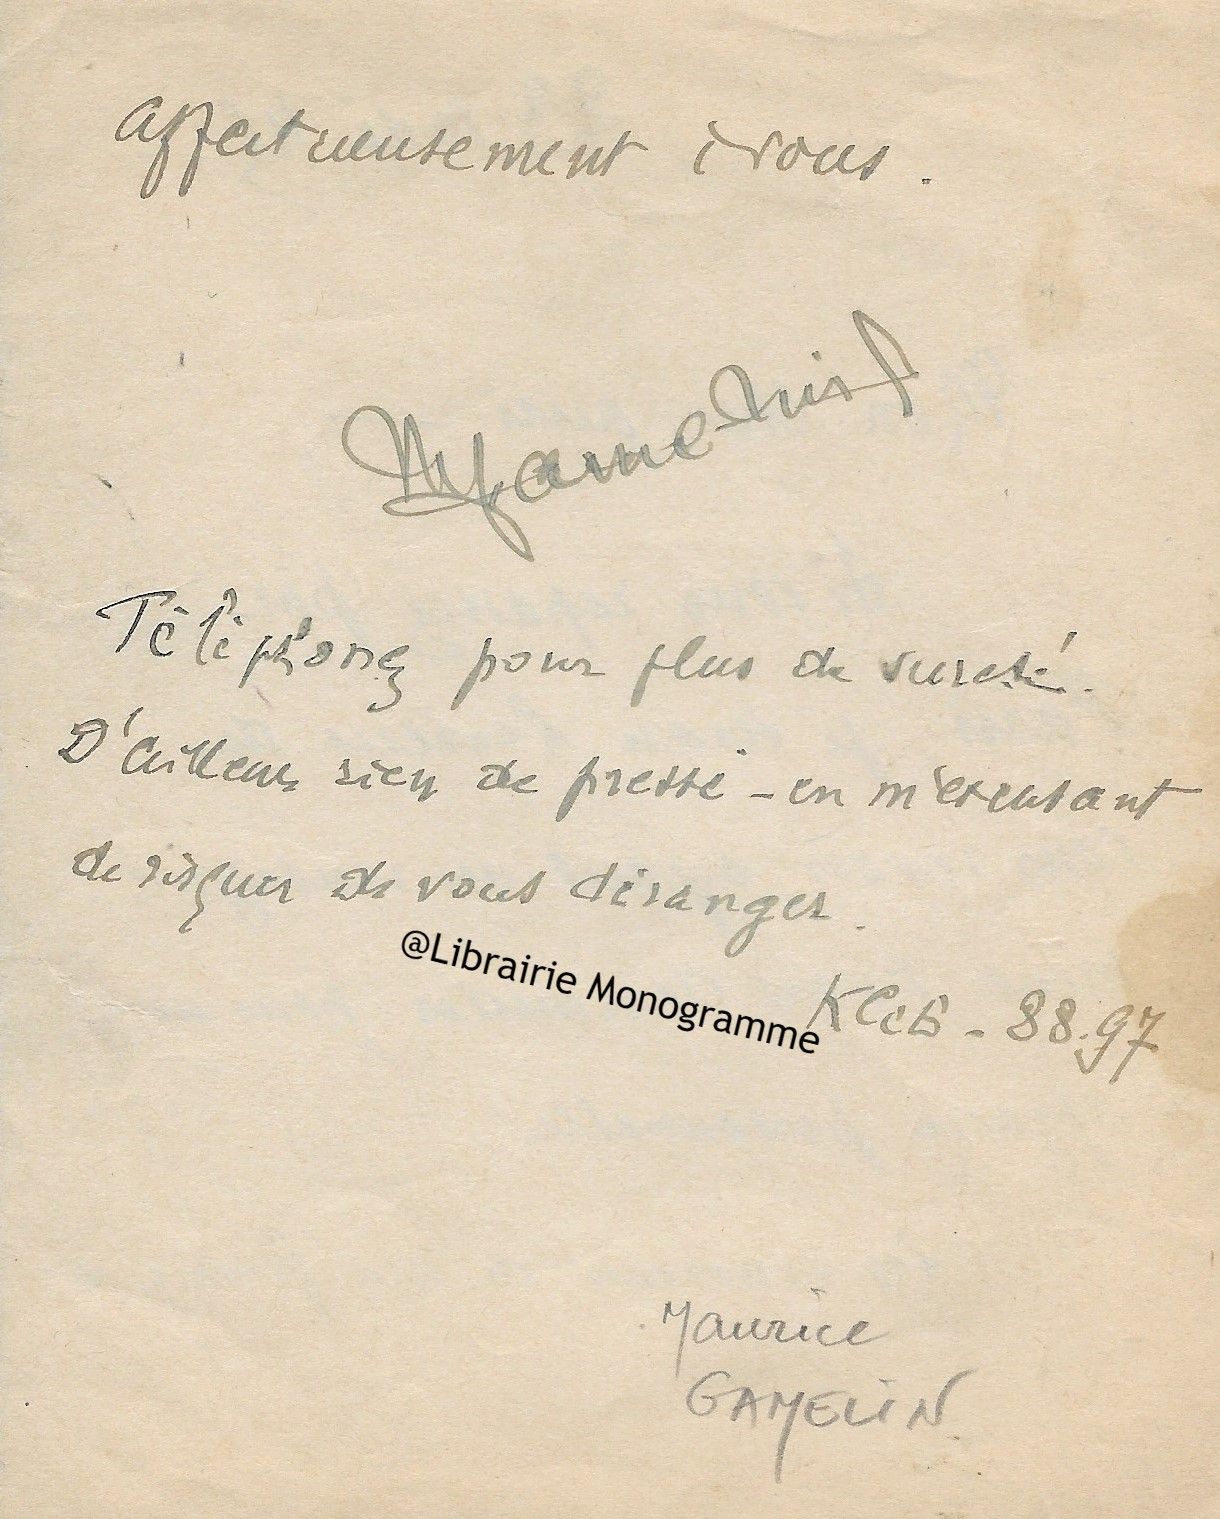 affectueusement à vous.
MGamelin
Téléphonez pour plus de sureté.
D'ailleurs rien de pressé - en m'excusant
de risquer de vous déranger.
@Librairie Monogramme
KLéb - 88.97
Maurice
GAMELIN